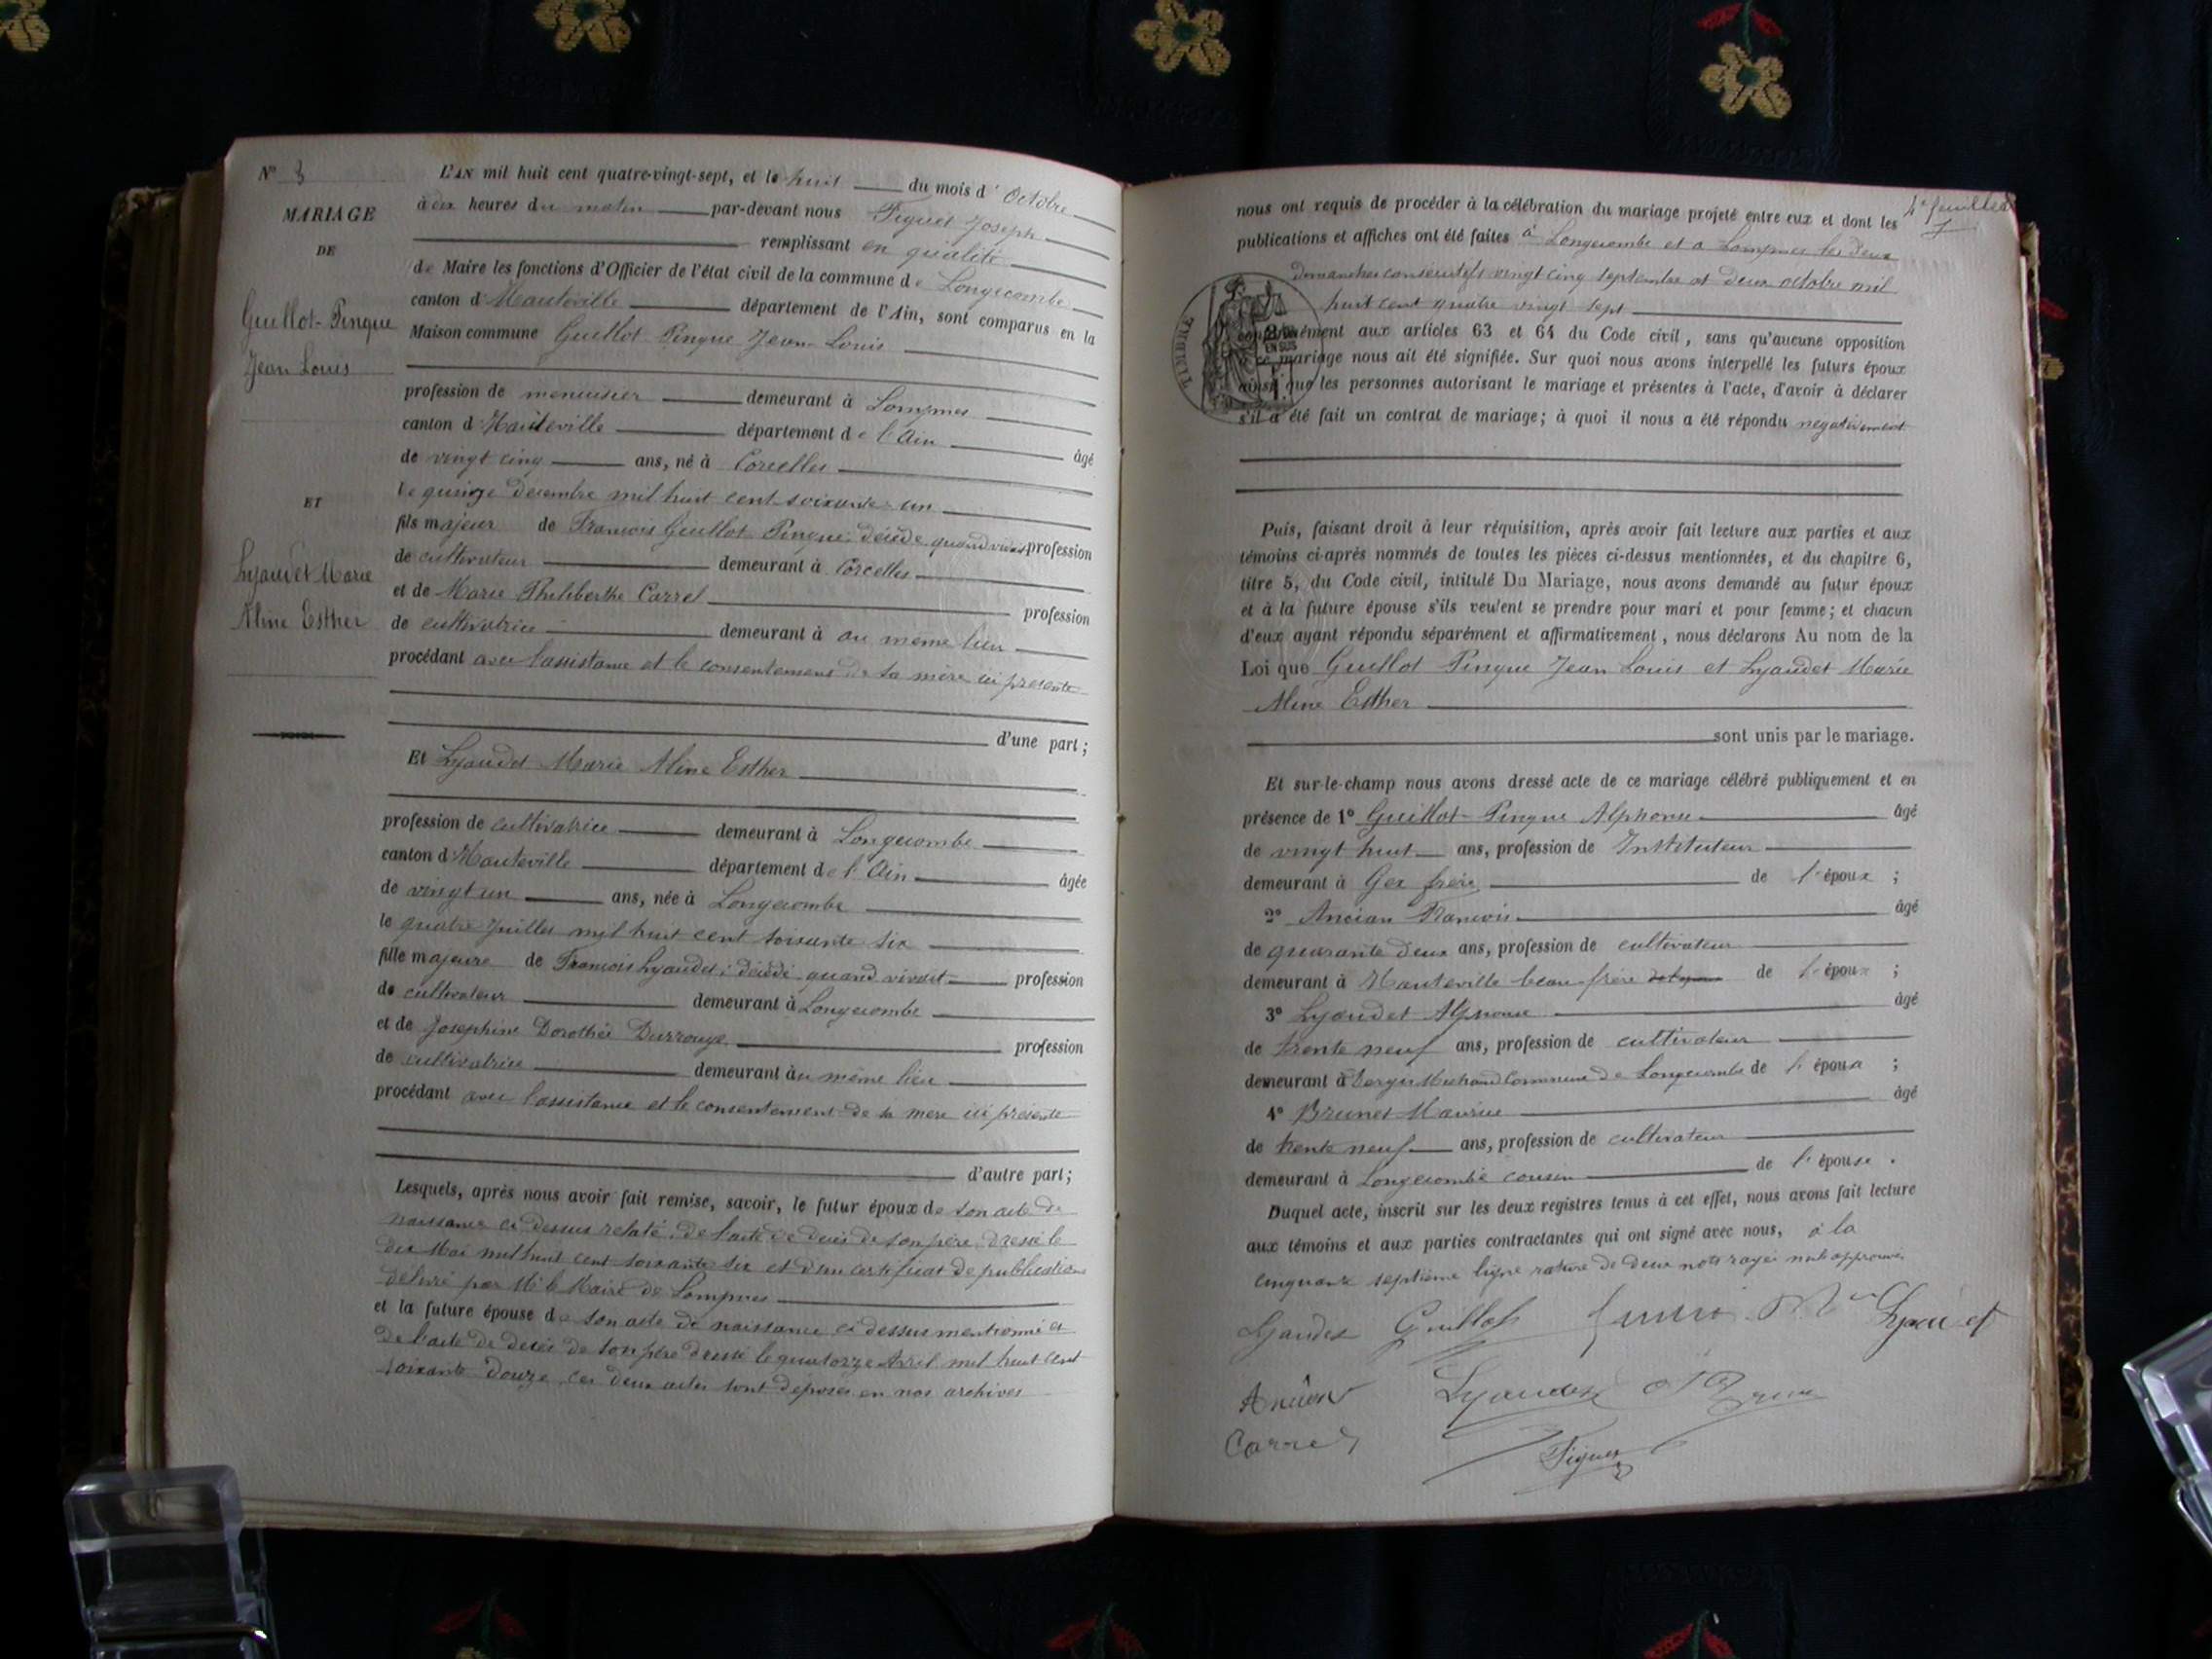 N° 3
MARIAGE
DE
Guillot-Pingue
Jean Louis
ET
Lyaudet Marie
Aline Esther
L'AN mil huit cent quatre-vingt-sept, et le huit du mois d'Octobre
à dix heures du matin par-devant nous Figuet Joseph
remplissant en qualité
de Maire les fonctions d'Officier de l'état civil de la commune de Longecombe
canton d'Hauteville département de l'Ain, sont comparus en la
Maison commune Guillot Pingue Jean Louis
profession de menuisier demeurant à Lompnes
canton d'Hauteville département de l'Ain âgé
de vingt cinq ans, né à Corcelles
le quinze décembre mil huit cent soixante un
fils majeur de François Guillot Pingue décédé quand vivait profession
de cultivateur demeurant à Corcelles
et de Marie Philiberthe Carrel profession
de cultivatrice demeurant à au même lieu
procédant avec l'assistance et le consentement de sa mère ici présente
d'une part;
Et Lyaudet Marie Aline Esther
profession de cultivatrice demeurant à Longecombe
canton d'Hauteville département de l'Ain âgée
de vingt un ans, née à Longecombe
le quatre Juillet mil huit cent soixante six
fille majeure de François Lyaudet; décédé quand vivait profession
de cultivateur demeurant à Longecombe
et de Josephine Dorothée Durrouge profession
de cultivatrice demeurant au même lieu
procédant avec l'assistance et le consentement de sa mère ici présente
d'autre part;
Lesquels, après nous avoir fait remise, savoir, le futur époux de son acte de
naissance ci dessus relaté, de l'acte de décès de son père dressé le
dix Mai mil huit cent soixante six et d'un certificat de publication
délivré par Mr le Maire de Lompnes
et la future épouse de son acte de naissance ci dessus mentionné et
de l'acte de décès de son père dressé le quatorze Avril mil huit cent
soixante douze ces deux actes sont déposés en nos archives
4e feuillet
nous ont requis de procéder à la célébration du mariage projeté entre eux et dont les
publications et affiches ont été faites à Longecombe et a Lompnes les deux
dimanches consécutifs vingt cinq septembre et deux octobre mil
huit cent quatre vingt sept
TIMBRE
EN SUS
conformément aux articles 63 et 64 du Code civil, sans qu'aucune opposition
à ce mariage nous ait été signifiée. Sur quoi nous avons interpellé les futurs époux
ainsi que les personnes autorisant le mariage et présentes à l'acte, d'avoir à déclarer
s'il a été fait un contrat de mariage; à quoi il nous a été répondu négativement
Puis, faisant droit à leur réquisition, après avoir fait lecture aux parties et aux
témoins ci-après nommés de toutes les pièces ci-dessus mentionnées, et du chapitre 6,
titre 5, du Code civil, intitulé Du Mariage, nous avons demandé au futur époux
et à la future épouse s'ils veulent se prendre pour mari et pour femme; et chacun
d'eux ayant répondu séparément et affirmativement, nous déclarons Au nom de la
Loi que Guillot Pingue Jean Louis et Lyaudet Marie
Aline Esther
sont unis par le mariage.
Et sur-le-champ nous avons dressé acte de ce mariage célébré publiquement et en
présence de 1° Guillot-Pingue Alphonse âgé
de vingt huit ans, profession de Instituteur
demeurant à Gex frère de l'époux;
2° Ancian François âgé
de quarante deux ans, profession de cultivateur
demeurant à Hauteville beau-frère de l'époux;
3° Lyaudet Alphonse âgé
de trente neuf ans, profession de cultivateur
demeurant à Commune de Longecombe de l'époux;
4° Brunet Maurice âgé
de trente neuf ans, profession de cultivateur
demeurant à Longecombe cousin de l'épouse.
Duquel acte, inscrit sur les deux registres tenus à cet effet, nous avons fait lecture
aux témoins et aux parties contractantes qui ont signé avec nous, à la
cinquante septième ligne rature de deux mots rayés nuls approuvé
Lyaudet Guillot Lyaudet
Ancian Lyaudet
Carrel Figuet